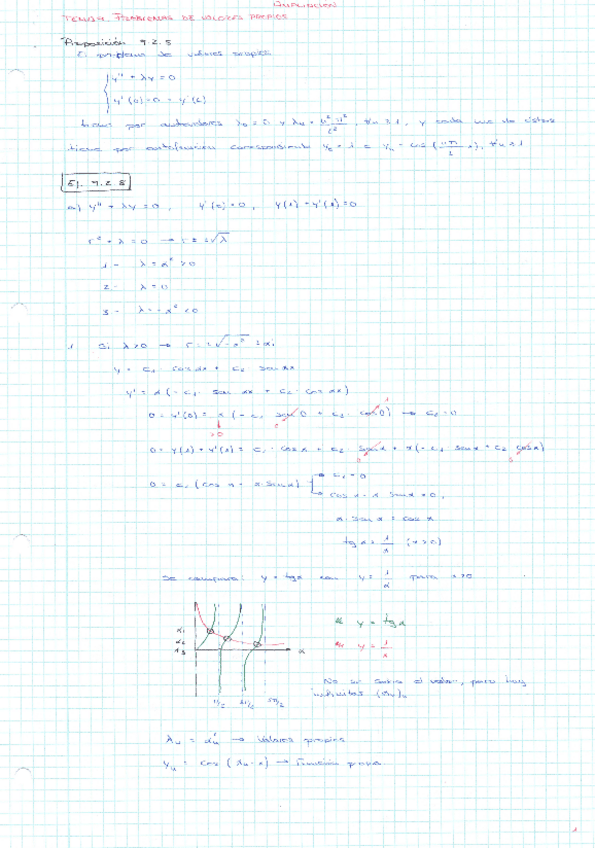 AMPLIACIÓN
TEMA 4 PROBLEMAS DE VALORES PROPIOS
Proposición 9.2.5
El problema de valores
y'' + λy = 0
y'(0) = 0 = y'(L)
tiene por autovalores λ₀ = 0 y λₙ = n²π²/L², ∀n ≥ 1, y cada uno de estos
tiene por autofunción correspondiente y₀ = 1 e yₙ = cos(nπ/L x), ∀n ≥ 1
Ej. 9.2.8
a) y'' + λy = 0, y'(0) = 0, y(1) + y'(1) = 0
r² + λ = 0 → r = ±√-λ
1- λ = α² > 0
2- λ = 0
3- λ = -α² < 0
1 Si λ>0 → r = ±√-α² = ±αi
y = c₁ · cos αx + c₂ sen αx
y' = α(-c₁ · sen αx + c₂ · cos αx)
0 = y'(0) = α(-c₁ sen 0 + c₂ · cos 0) → c₂ = 0
0 = y(1) + y'(1) = c₁ · cos α + c₂ sen α + α(-c₁ sen α + c₂ cos α)
0 = c₁ (cos α - α · sen α) → c₁ = 0
→ cos α - α sen α = 0,
α · sen α = cos α
tg α = 1/α (α > 0)
Se compara: y = tg α con y = 1/α para α > 0
y = tg α
y = 1/α
α₁
α₂
α₃
α
π/2 3π/2 5π/2
No se sabe el valor, pero hay
infinitas (αₙ)ₙ
λₙ = αₙ² → Valores propios
yₙ = cos(αₙ · x) → Función propia
1